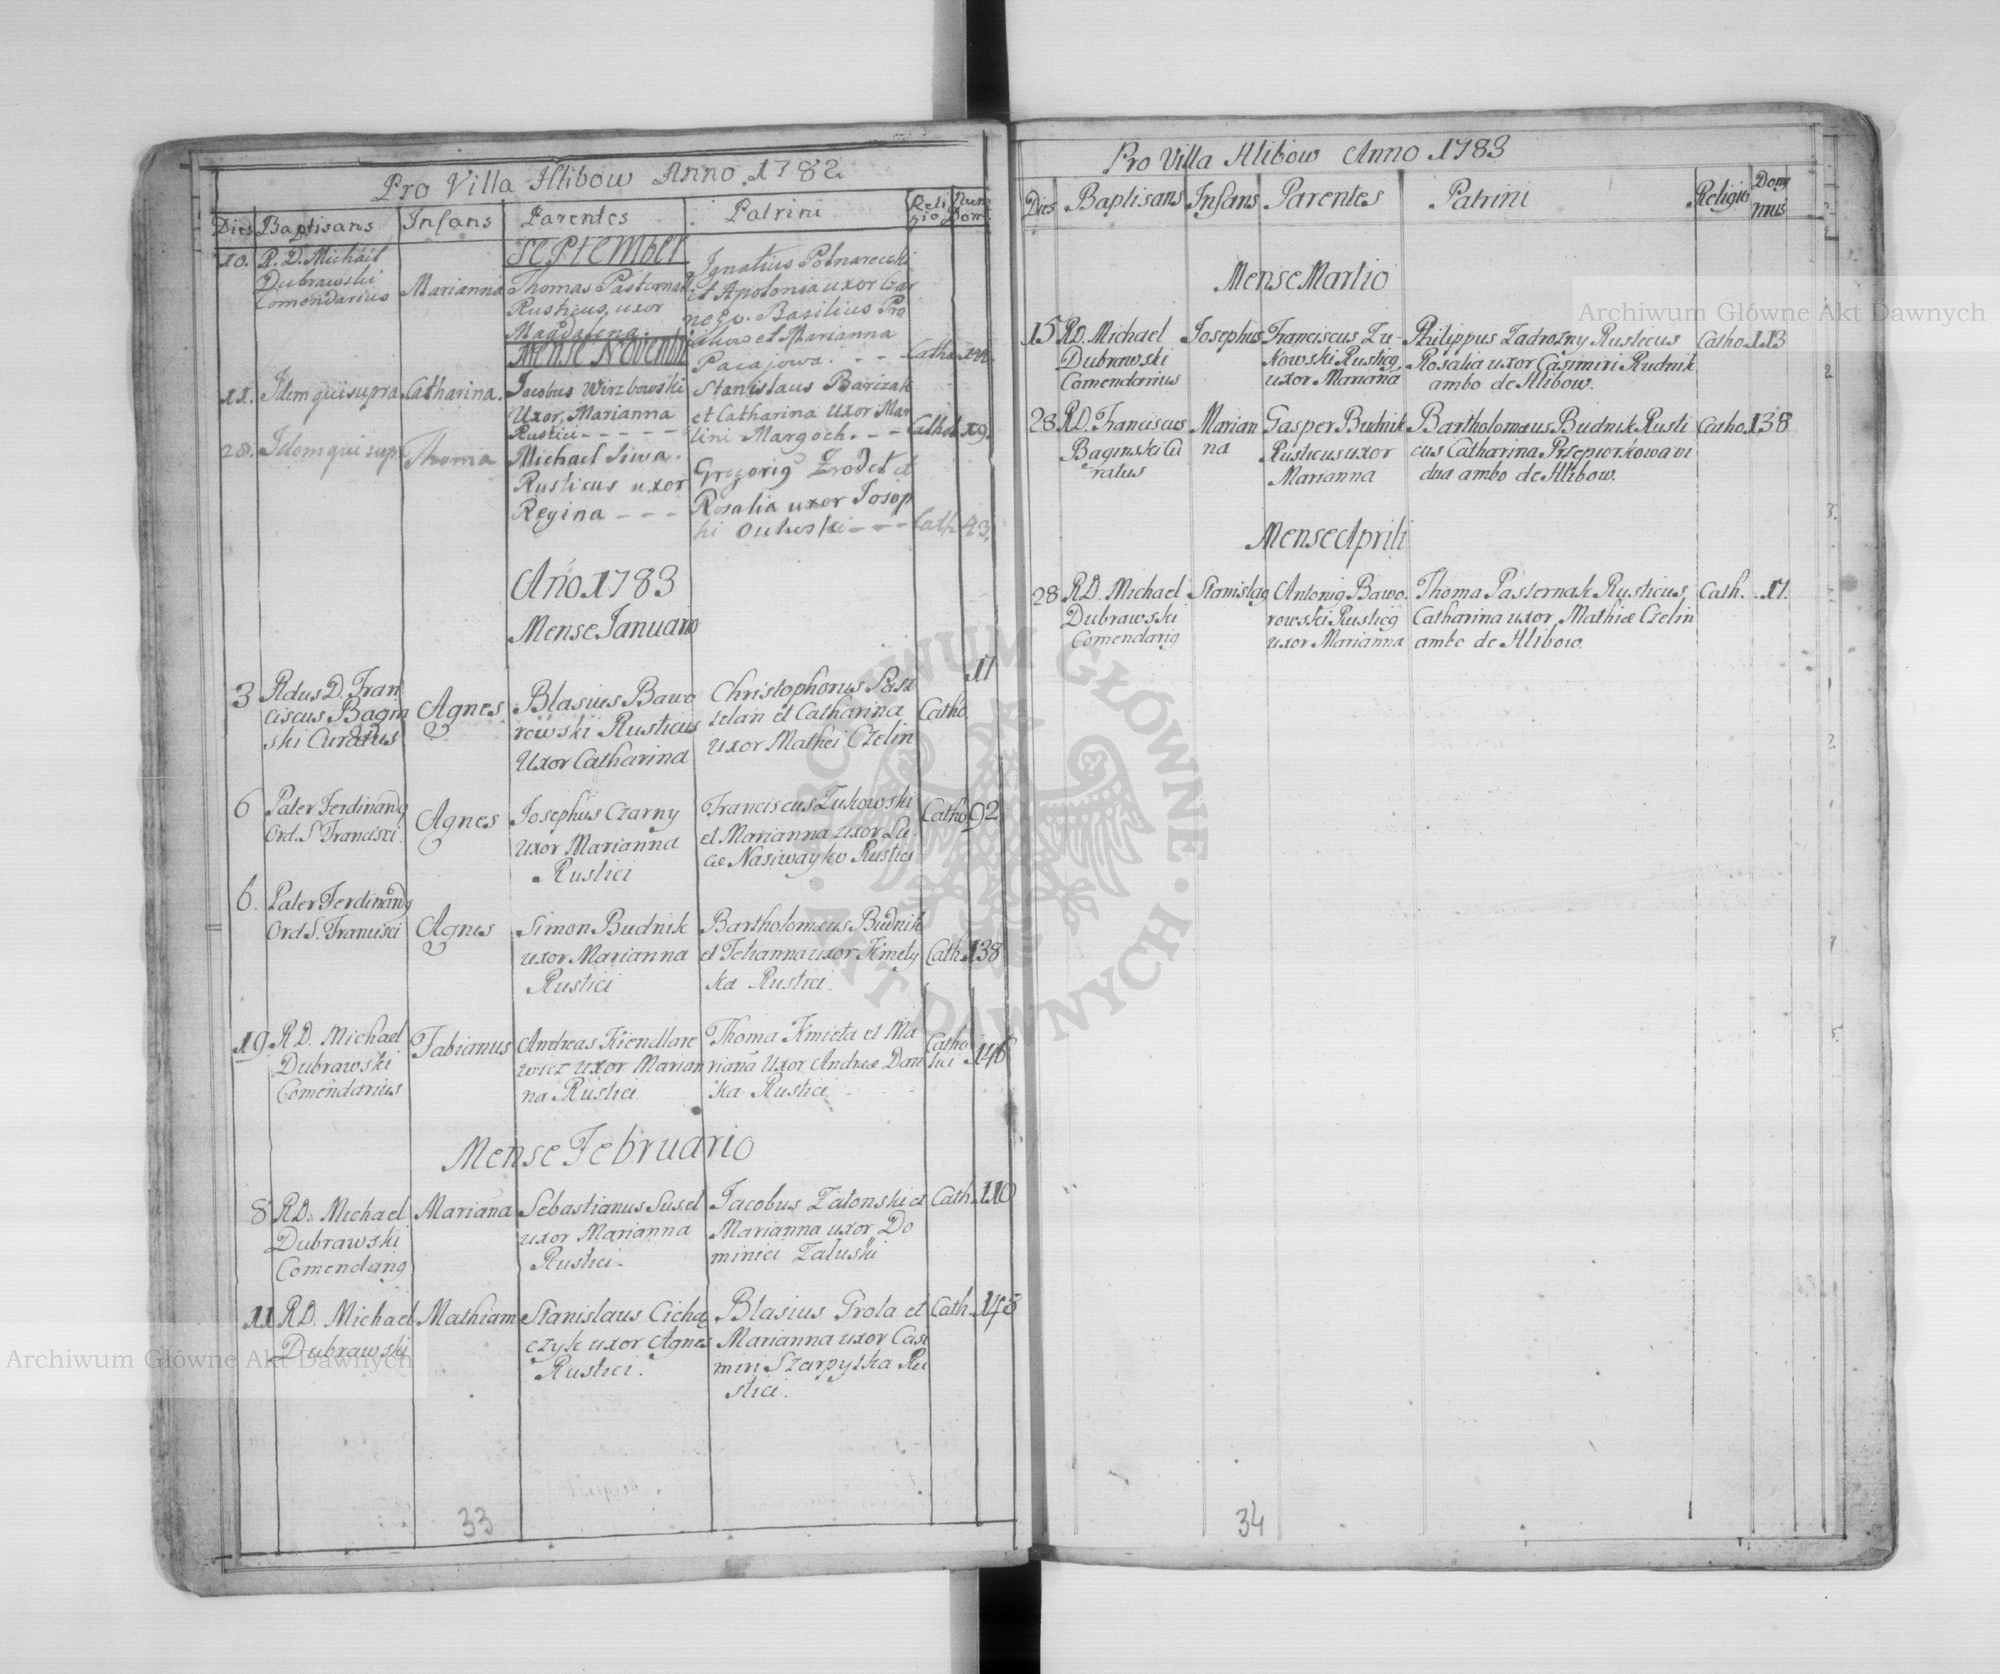 Pro Villa Hlibow Anno 1782
Dies Baptisans Infans Parentes Patrini Religio Num Dom:
September
10. R. D. Michael Dubrawski Comendarius
Marianna
Thomas Pasternak
Rusticus, uxor
Magdalena.
Ignatius
et Apolonia uxor
Basilius
et Marianna
Pacajowa. - - -
Catho
Mense Novemb
11. Idem qui supra
Catharina.
Jacobus Wirzbowski
Uxor, Marianna
Rustici - - - - -
Stanislaus Barczak
et Catharina uxor Mar
tini Margoch. - - -
Cathol
19.
28. Idem qui sup
Thoma
Michael Siwa.
Rusticus uxor
Regina - - -
Gregorig Zrodet et
Rosalia uxor Josep
hi - - -
Cath
43.
Año. 1783
Mense Januario
3
Rdus D. Fran
ciscus Bagin
ski Curatus
Agnes
Blasius Bawo
rowski Rusticus
Uxor Catharina
Christophorus
et Catharina
uxor Mathei Czelin
Catho.
11
6
Pater Ferdinandg
Ord. S. Francisci.
Agnes
Josephus Czarny
uxor Marianna
Rustici
Franciscus Zukowski
et Marianna uxor Lu-
cæ Nasiwayko Rustici
Catho
92
6.
Pater Ferdinandg
Ord S. Francisci
Agnes
Simon Budnik
uxor Marianna
Rustici
Bartholomæus Budnik
et Johanna uxor Kmety
ka Rustici.
Cath.
138
19
R D. Michael
Dubrawski
Comendarius
Fabianus
Andreas Kiendlare
wicz uxor Marian
na Rustici.
Thoma Kmieta et Ma
riana Uxor Andreæ Dan
ka Rustici.
Catho
lici
146
Mense Februario
8
R D. Michael
Dubrawski
Comendarig
Mariana
Sebastianus Susel
uxor Marianna
Rustici.
Jacobus Zatonski et
Marianna uxor Do
minici Zaluski
Cath.
110
11
R D. Michael
Dubrawski
Mathiam
Stanislaus Cicha
czyk uxor Agnes
Rustici.
Blasius Grola et
Marianna uxor Casi
miri Szarpyska Ru
stici.
Cath.
143
33
Pro Villa Hlibow Anno 1783
Dies Baptisans Infans Parentes Patrini Religio Domus
Mense Martio
15
R D. Michael
Dubrawski
Comendarius
Josephus
Franciscus Zu-
kowski Rusticg
uxor Mariana
Philippus Zadrozny Rusticus
Rosalia uxor Casimiri Rudnik
ambo de Hlibow.
Catho.
113
28
R D. Franciscus
Baginski Cu
ratus
Marian
na
Gasper Budnik
Rusticus uxor
Marianna
Bartholomæus Budnik Rusti
cus Catharina Przepiorkowa vi
dua ambo de Hlibow.
Catho.
138
Mense Aprili
28
R D. Michael
Dubrawski
Comendarig
Stanislag
Antonig Bawo.
rowski Rusticg
uxor Marianna
Thoma Pasternak Rusticus,
Catharina uxor Mathiæ Czelin
ambo de Hlibow.
Cath.
11.
34
Archiwum Główne Akt Dawnych
Archiwum Główne Akt Dawnych
ARCHIWUM GŁÓWNE AKT DAWNYCH